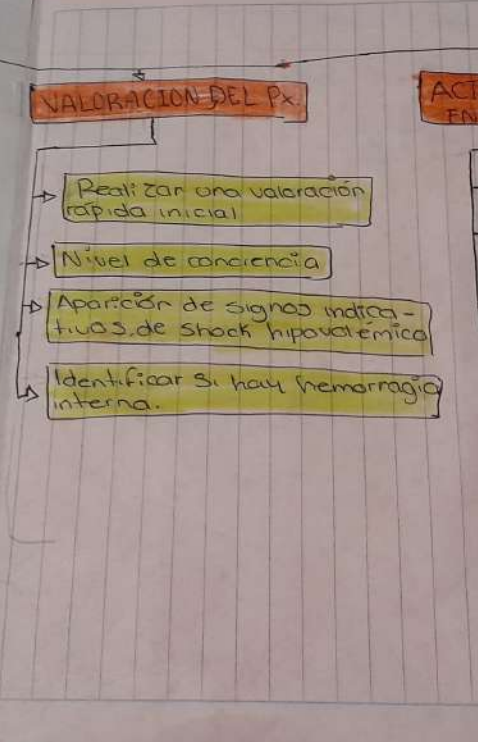 VALORACION DEL Px.
ACT
EN
Realizar una valoración
rápida inicial
Nivel de conciencia
Aparición de signos indica-
tivos de shock hipovolémico
Identificar si hay hemorragia
interna.